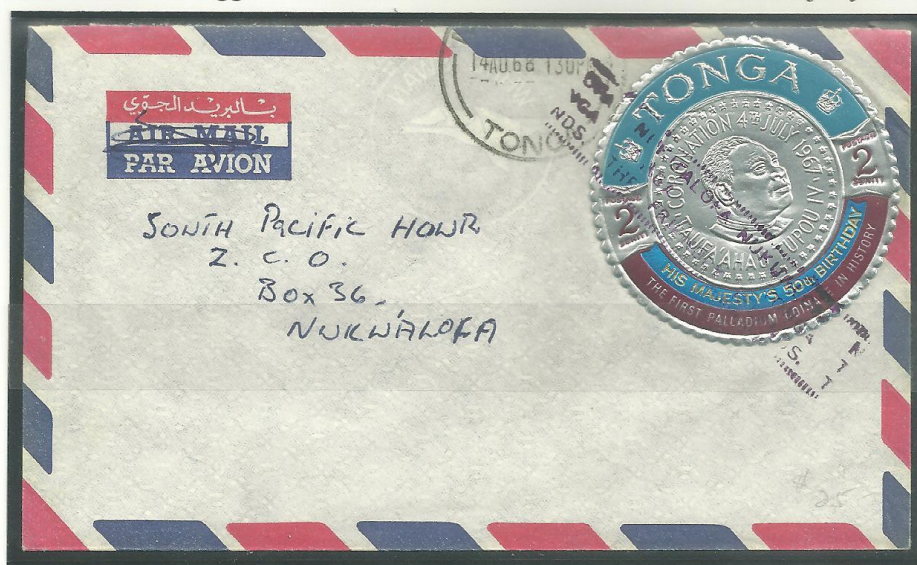 بالبريد الجوّي
AIR MAIL
PAR AVION
14 AU 68 130P
TONG
NDS.
TONGA
POSTAGE 2 SENITI
POSTAGE 2 SENITI
CORONATION 4TH JULY 1967
TAUFA'AHAU TUPOU IV
HIS MAJESTY'S 50th BIRTHDAY
THE FIRST PALLADIUM COINAGE IN HISTORY
SOUTH PACIFIC
Z. C. O.
BOX 36.
NUKU'ALOFA
$25